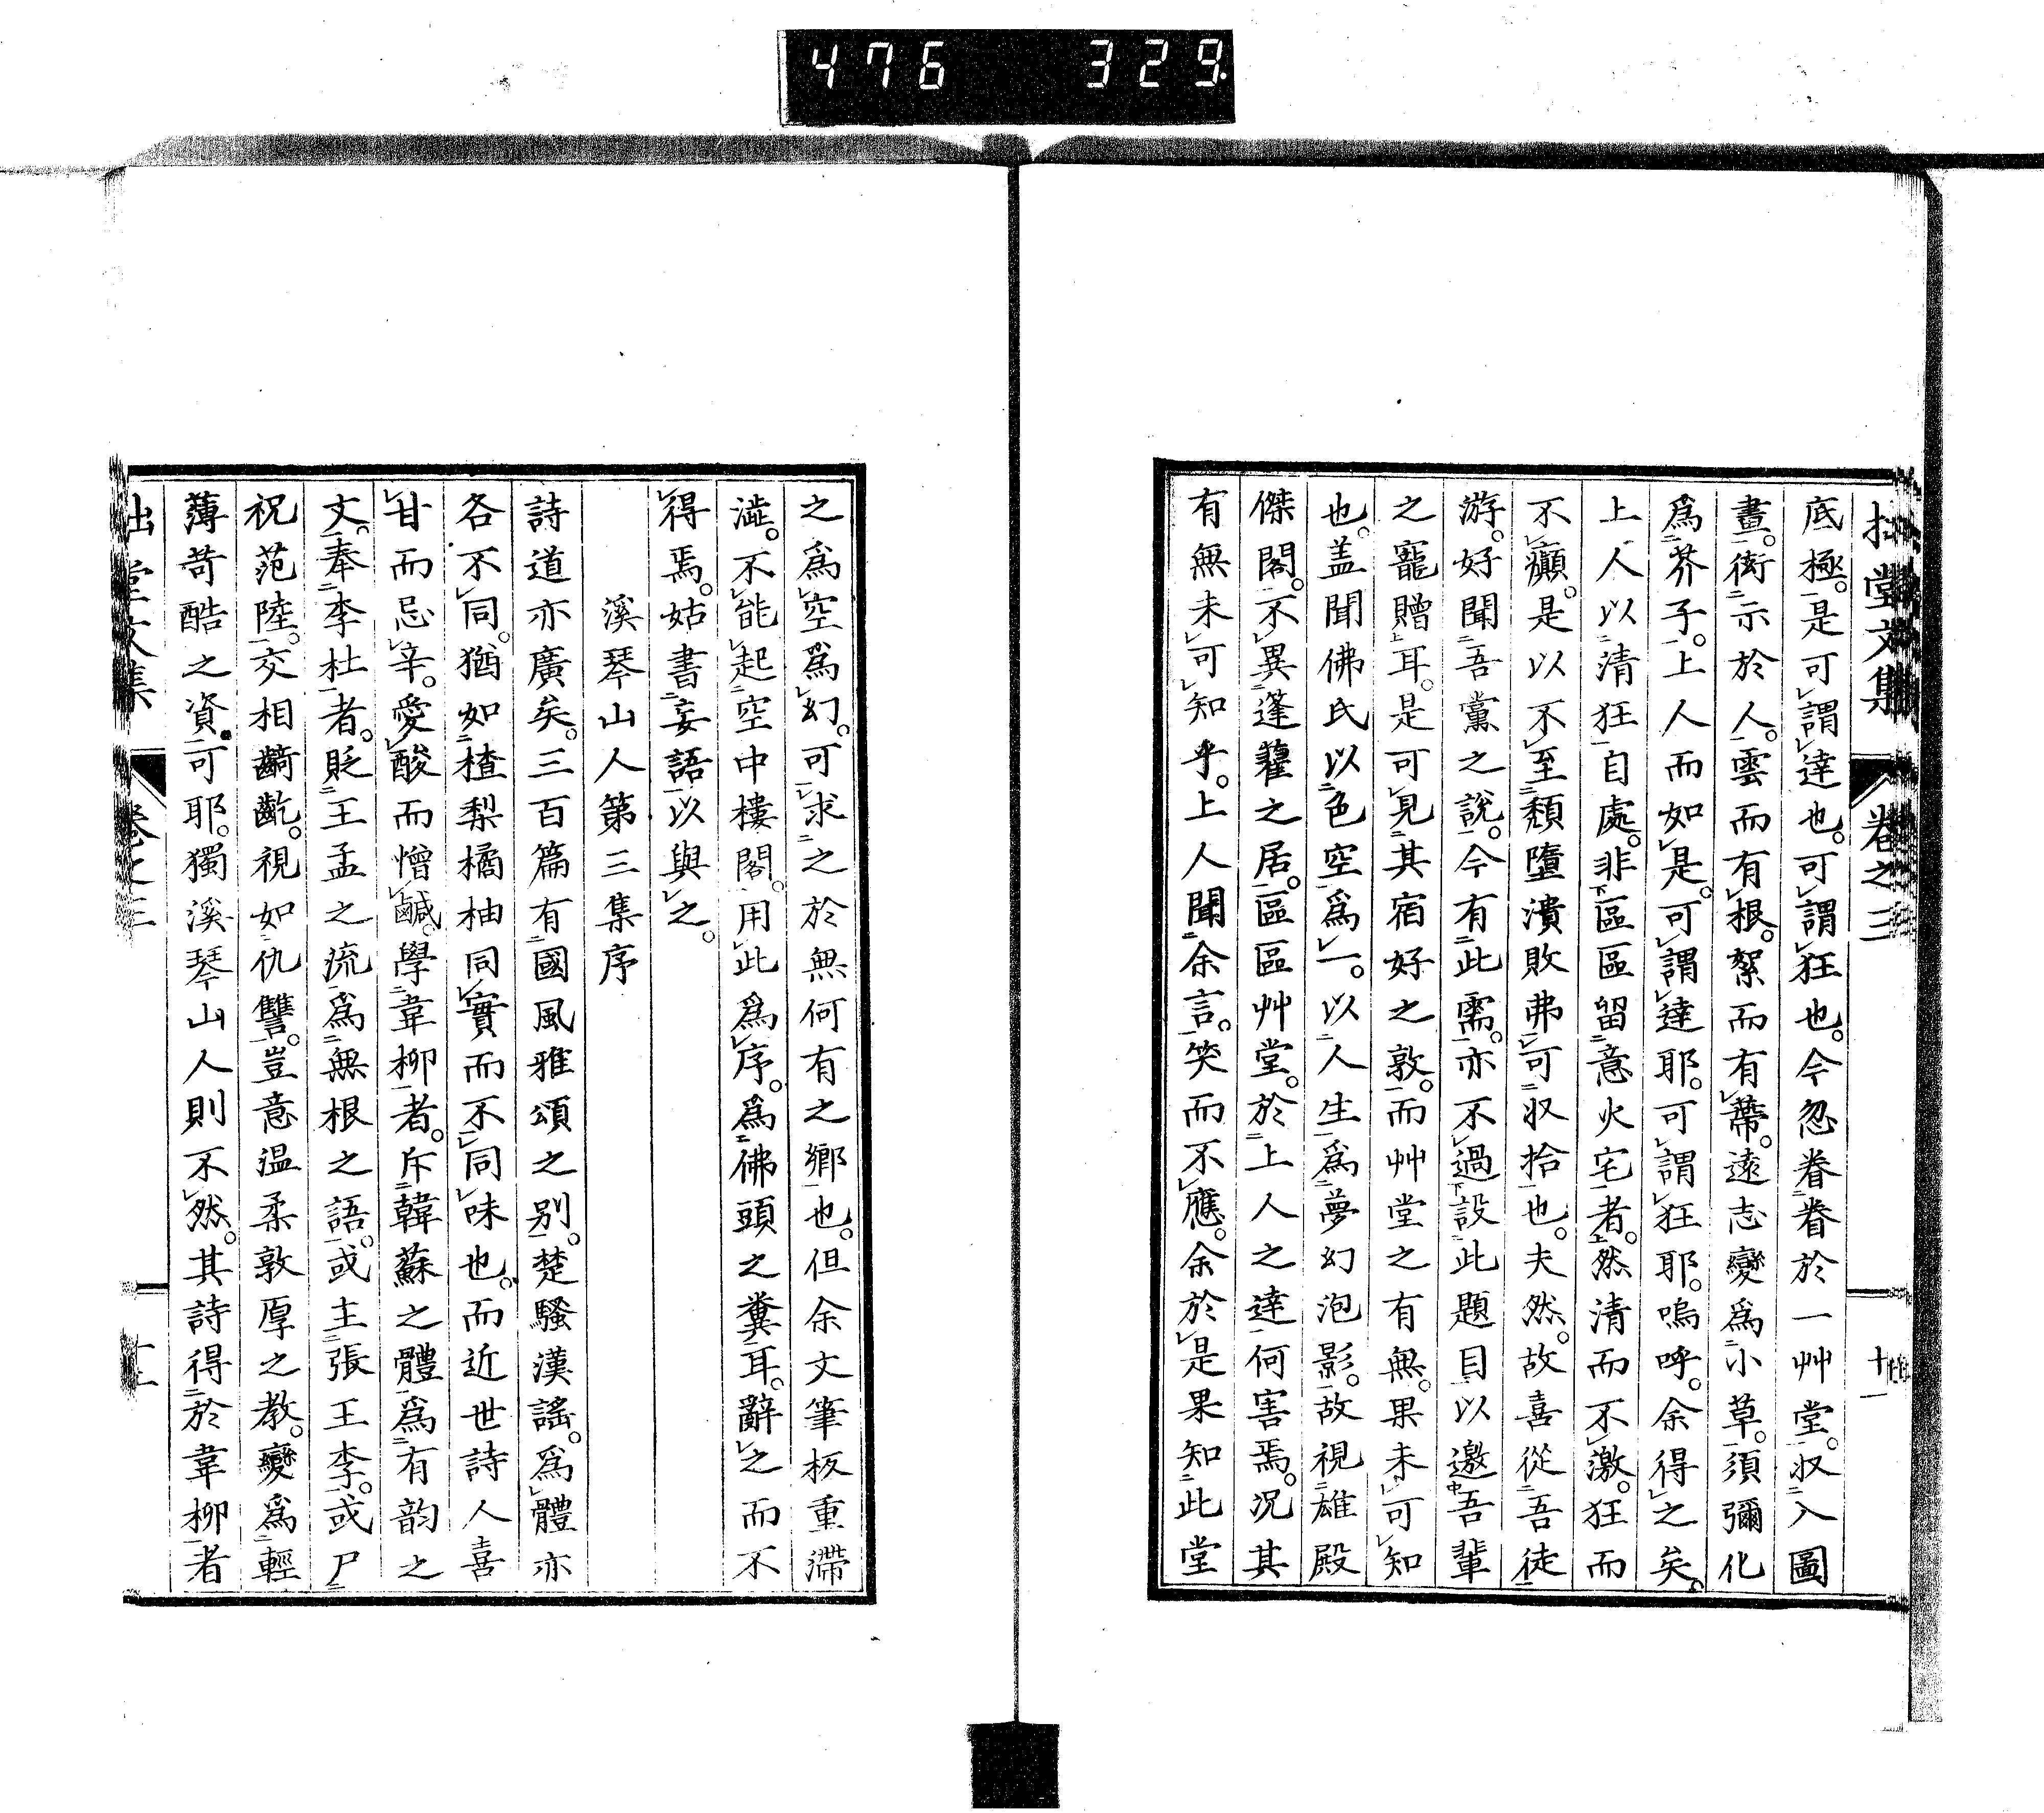 476 329
拙堂文集 卷之三 十一
底極。是可謂達也。可謂狂也。今忽眷眷於一艸堂。収入圖
畫。衒示於人。雲而有根。絮而有蔕。遠志變爲小草。須彌化
爲芥子。上人而如是。可謂達耶。可謂狂耶。嗚呼。余得之矣。
上人以清狂自處。非區區留意火宅者。然清而不激。狂而
不癲。是以不至頽墮潰敗弗可収拾也。夫然。故喜從吾徒
游。好聞吾黨之說。今有此需。亦不過設此題目以邀吾輩
之寵贈耳。是可見其宿好之敦。而艸堂之有無。果未可知
也。盖聞佛氏以色空爲一。以人生爲夢幻泡影。故視雄殿
傑閣。不異蓬藋之居。區區艸堂。於上人之達何害焉。况其
有無未可知乎。上人聞余言。笑而不應。余於是果知此堂
之爲空爲幻。可求之於無何有之鄉也。但余文筆板重滯
澁。不能起空中樓閣。用此爲序。爲佛頭之糞耳。辭之而不
得焉。姑書妄語以與之。
溪琴山人第三集序
詩道亦廣矣。三百篇有國風雅頌之別。楚騷漢謠。爲體亦
各不同。猶如楂梨橘柚同實而不同味也。而近世詩人喜
甘而忌辛。愛酸而憎鹹。學韋柳者。斥韓蘇之體爲有韵之
文。奉李杜者。貶王孟之流爲無根之語。或主張王李。或尸
祝范陸。交相齮齕。視如仇讐。豈意温柔敦厚之教。變爲輕
薄苛酷之資。可耶。獨溪琴山人則不然。其詩得於韋柳者
拙堂文集 卷之三